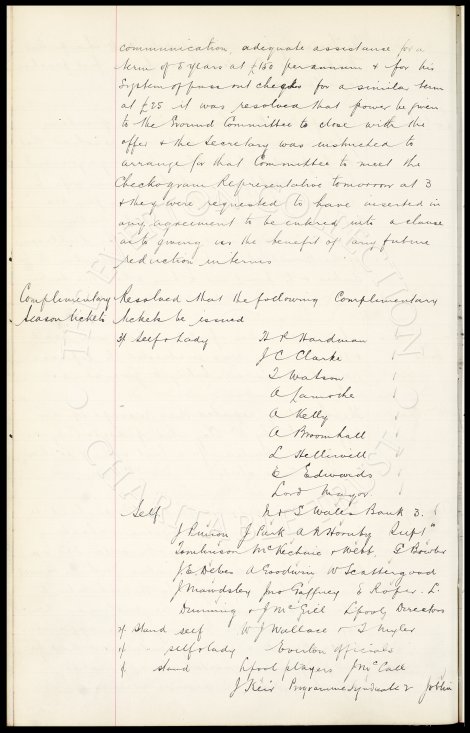 communication, adequate assistance for a
term of 5 years at £150 per annum & for his
System of pass out checks for a similar term
at £25 it was resolved that power be given
to the Ground Committee to close with the
offer & the Secretary was instructed to
arrange for that Committee to meet the
Checkogram Representative tomorrow at 3
& they were requested to have inserted in
any agreement to be entered into a clause
as to giving us the benefit of any future
reduction in terms
Complimentary Resolved that the following Complimentary
Season tickets tickets be issued
Self & Lady H P Hardman
J C Clarke
T Watson
A Lamothe
A Kelly
A Broomhall
L Helliwell
E Edwards
Lord Mayor
Self N & S Wales Bank 3.
J Prinson J Park A N Hornby Supt
Tomlinson McKechnie & Webb, E Bowler
J E Debes A Goodwin W Scattergood
J Mawdsley Jno Gaffney E Roper. L.
Dunning & J McGill Lpool Directors
stand self W J Wallace &
self & lady Everton Officials
stand Lpool players J McCall
J Keir Programme Syndicate 2 Joblin